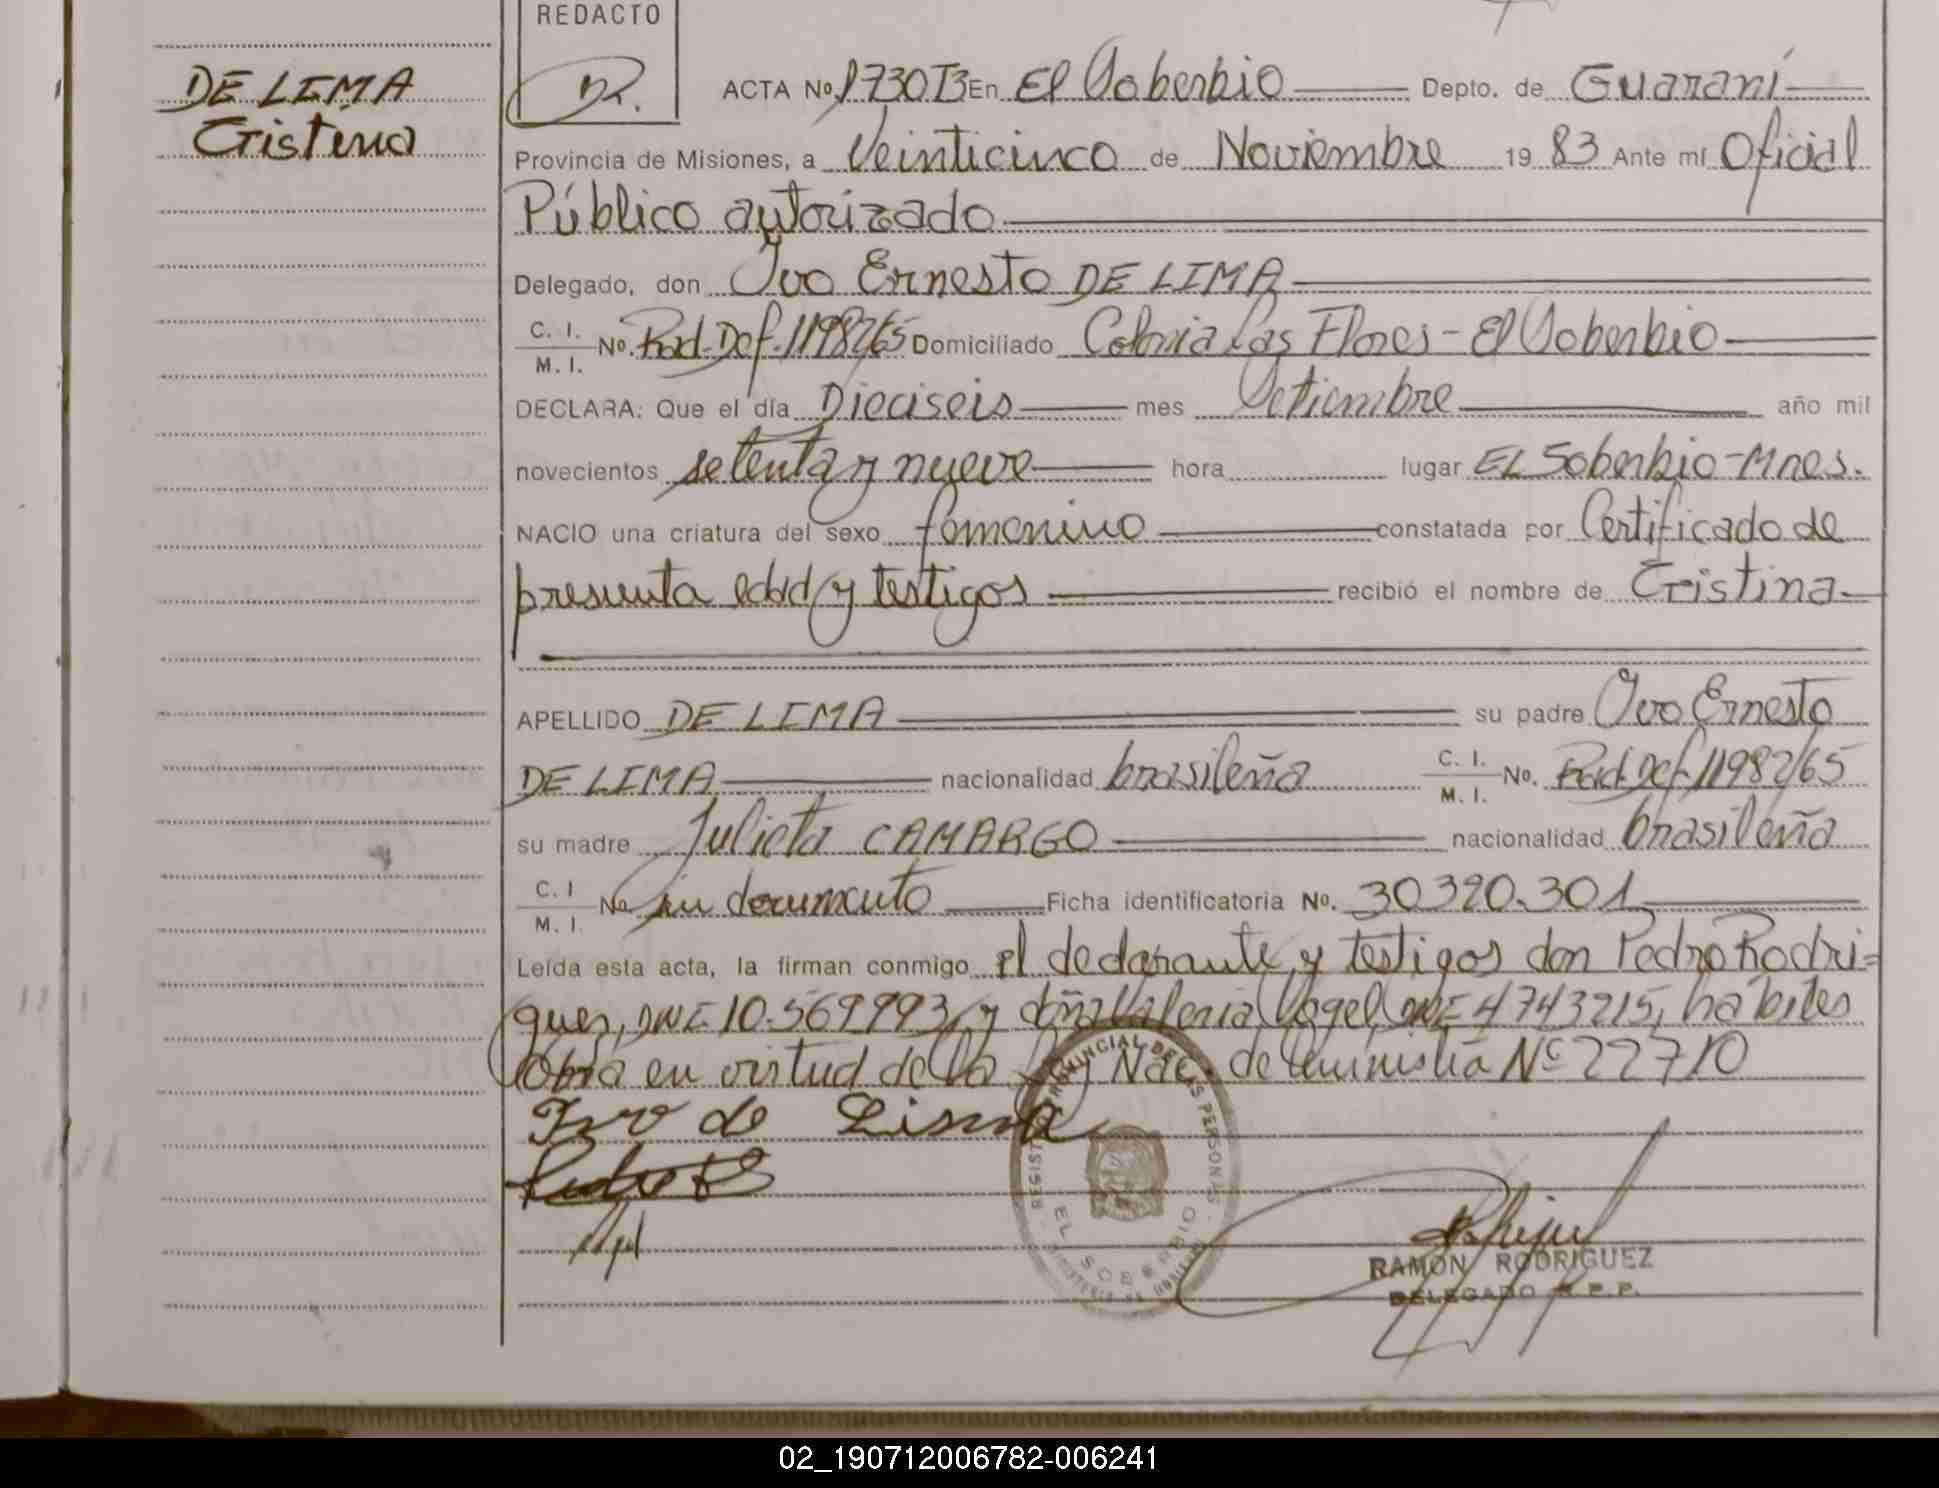 DE LIMA
Cristina
REDACTO
ACTA Nº 1730T3 En El Soberbio Depto. de Guaraní
Provincia de Misiones, a Veinticinco de Noviembre 19 83 Ante mí Oficial
Público autorizado
Delegado, don Ivo Ernesto DE LIMA
C. I.
M. I. No. Rad. Def. 11982/65 Domiciliado Colonia Las Flores - El Soberbio
DECLARA: Que el día Dieciseis mes Setiembre año mil
novecientos setenta y nueve hora lugar EL Soberbio-Mnes.
NACIO una criatura del sexo femenino constatada por Certificado de
presunta edad y testigos recibió el nombre de Cristina
APELLIDO DE LIMA su padre Ivo Ernesto
DE LIMA nacionalidad brasileña C. I.
M. I. No. Rad. Def. 11982/65
su madre Julieta CAMARGO nacionalidad brasileña
C. I
M. I. No sin documento Ficha identificatoria Nº. 30320.301
Leída esta acta, la firman conmigo el declarante y testigos don Pedro Rodri=
gues, DNI 10.569993 y doña Valeria Vogel, DNI 4743215, hábiles
Obra en virtud de la Ley Nac. de Aministía Nº 22710
Ivo de Lima
REGISTRO PROVINCIAL DE LAS PERSONAS
EL SOBERBIO
RAMON RODRIGUEZ
DELEGADO R.P.P.
02_190712006782-006241